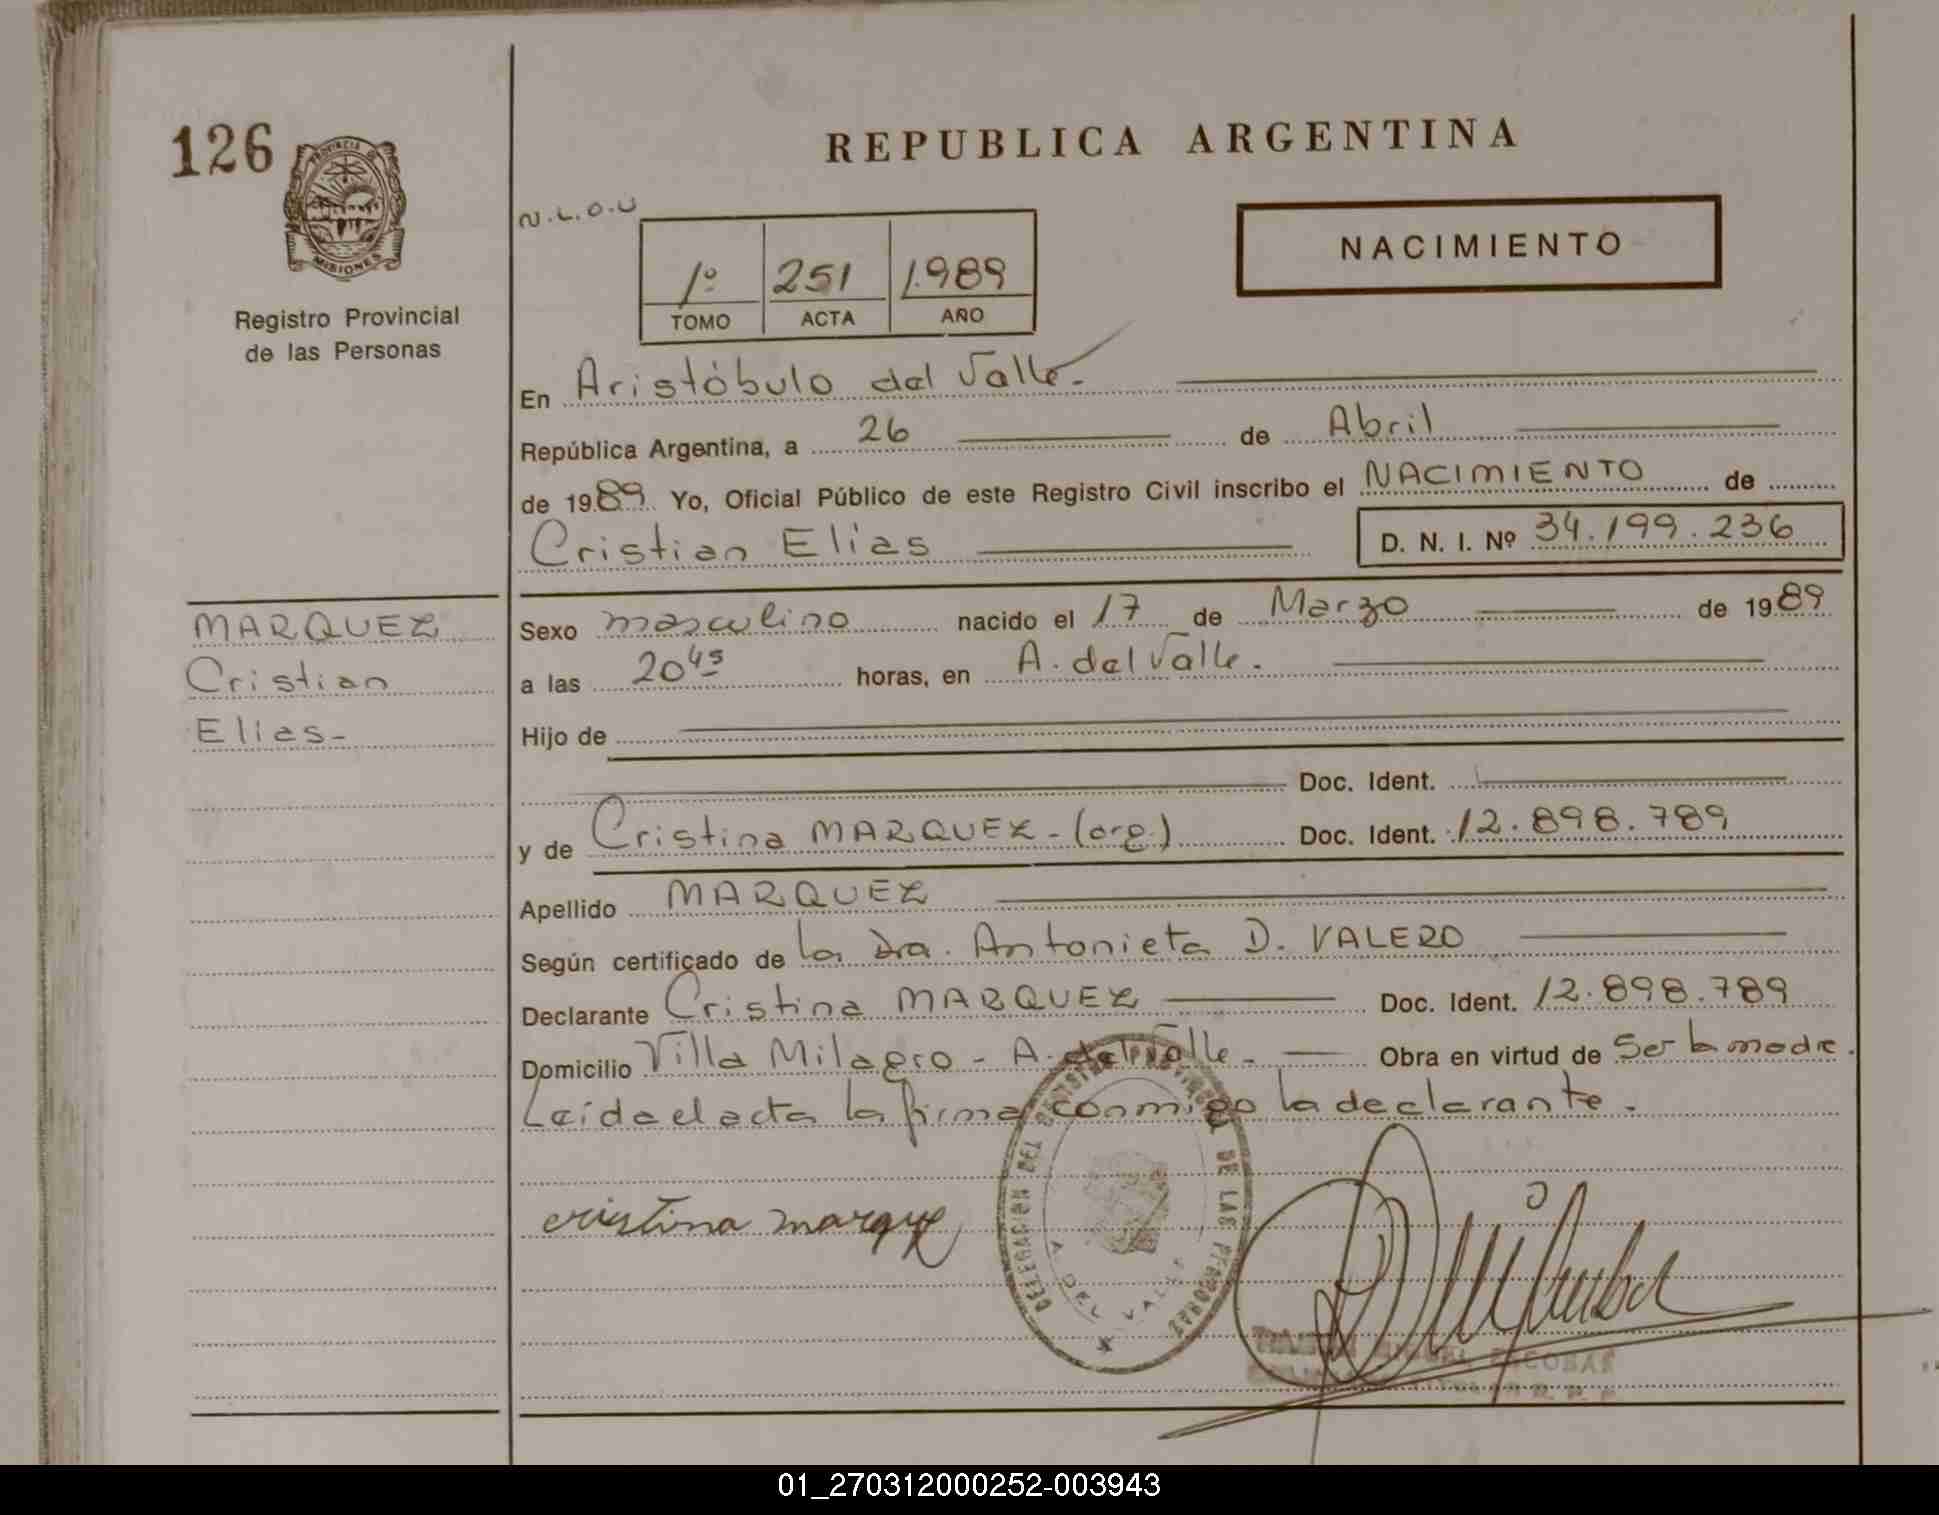 126
PROVINCIA DE
MISIONES
Registro Provincial
de las Personas
REPUBLICA ARGENTINA
N.L.O.U
1º 251 1.989
TOMO ACTA AÑO
NACIMIENTO
En Aristóbulo del Valle.-
República Argentina, a 26 de Abril
de 1989 Yo, Oficial Público de este Registro Civil inscribo el NACIMIENTO de
Cristian Elias D. N. I. Nº 34.199.236
MARQUEZ
Cristian
Elias-
Sexo masculino nacido el 17 de Marzo de 1989
a las 20 45 horas, en A. del Valle.
Hijo de
Doc. Ident.
y de Cristina MARQUEZ - (arg.) Doc. Ident. 12.898.789
Apellido MARQUEZ
Según certificado de la Dra. Antonieta D. VALERO
Declarante Cristina MARQUEZ Doc. Ident. 12.898.789
Domicilio Villa Milagro - A. del Valle - Obra en virtud de Ser la madre.
Leida el acta la firma conmigo la declarante.
cristina marquez
DELEGACION DEL REGISTRO PROVINCIAL DE LAS PERSONAS
A. DEL VALLE
MIGUEL ESCOBAR
TITULAR R. P. P
01_270312000252-003943